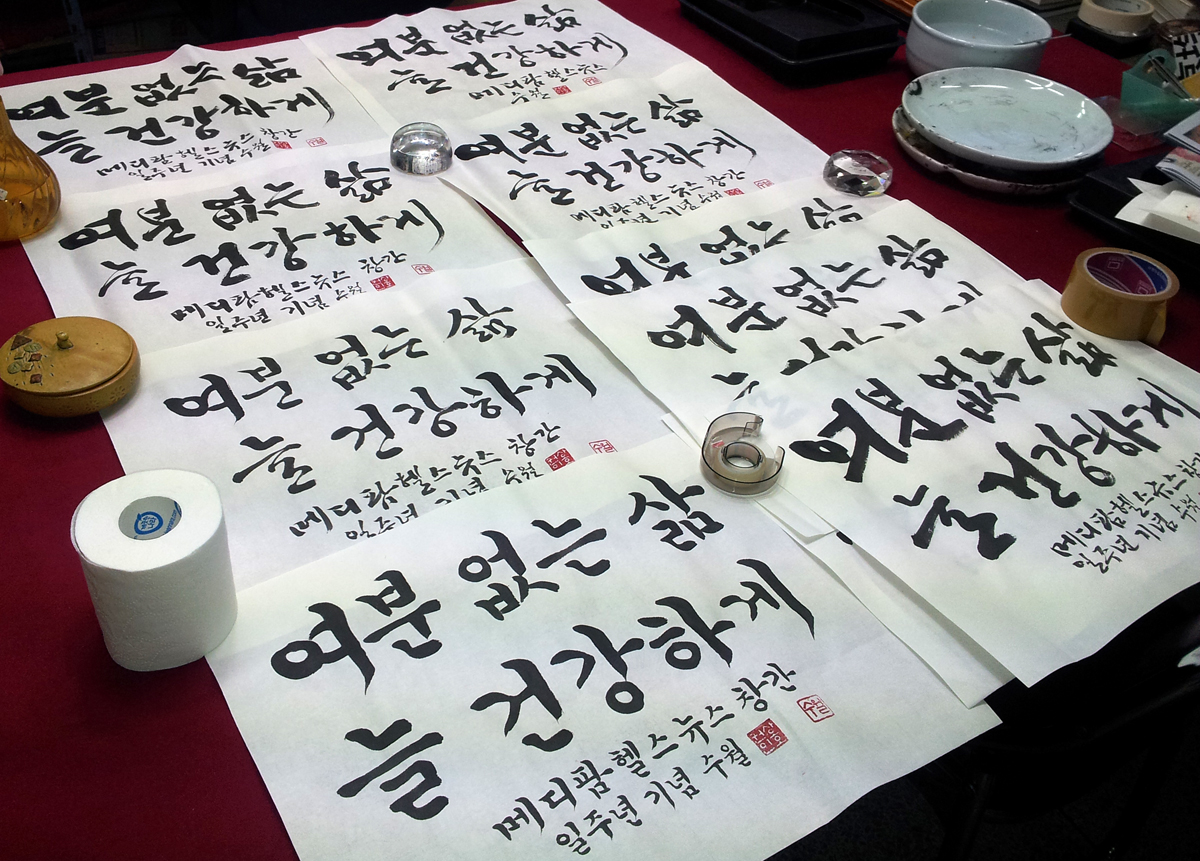 여분 없는 삶
늘 건강하게
메디팜헬스뉴스 창간
일주년 기념 수월
수월
여분 없는 삶
늘 건강하게
메디팜헬스뉴스
수월
여분 없는 삶
늘 건강하게
메디팜헬스뉴스 창간
일주년 기념 수월
여분 없는 삶
늘 건강하게
메디팜헬스뉴스 창간
일주년 기념 수월
여분 없는 삶
여분 없는 삶
여분 없는 삶
늘 건강하게
메디팜헬스뉴스 창간
일주년 기념 수월
수월
여분 없는 삶
늘 건강하게
메디팜헬스뉴스 창간
일주년 기념 수월
여분 없는 삶
늘 건강하게
메디팜헬스뉴스 창간
일주년 기념 수월
수월